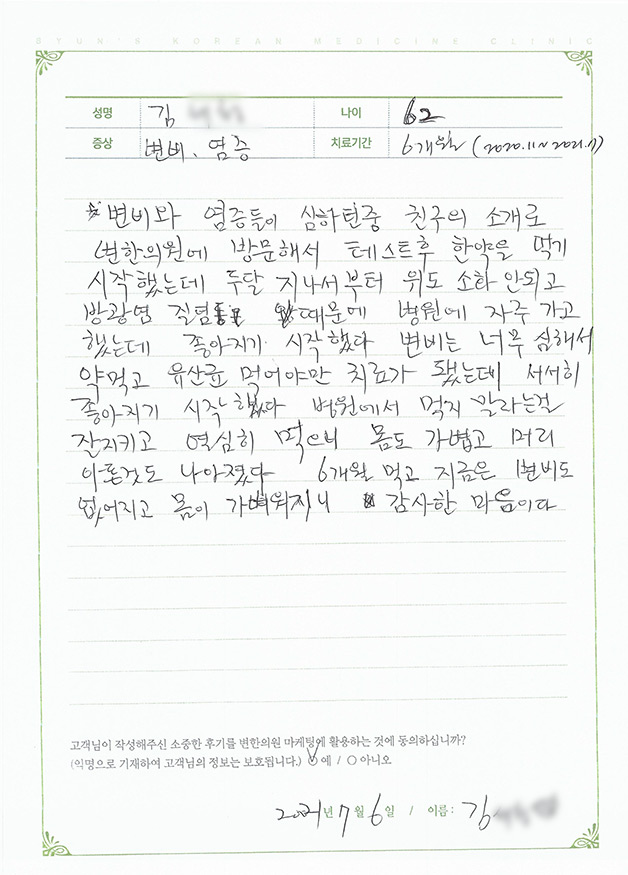 BYUN'S KOREAN MEDICINE CLINIC
성명 김 나이 62
증상 변비、염증 치료기간 6개월 (2020.11~2021.7)
변비와 염증들이 심하던중 친구의 소개로
변한의원에 방문해서 테스트후 한약을 먹기
시작했는데 두달 지나서부터 위도 소화 안되고
방광염 질염 때문에 병원에 자주 가고
했는데 좋아지기 시작했다 변비는 너무 심해서
약먹고 유산균 먹어야만 치료가 됐는데 서서히
좋아지기 시작했다 병원에서 먹지 말라는걸
잘지키고 열심히 먹으니 몸도 가볍고 머리
아픈것도 나아졌다 6개월 먹고 지금은 변비도
없어지고 몸이 가벼워지니 감사한 마음이다
고객님이 작성해주신 소중한 후기를 변한의원 마케팅에 활용하는 것에 동의하십니까?
(익명으로 기재하여 고객님의 정보는 보호됩니다.) 예 / 아니오
2021년 7월 6일 / 이름 : 김